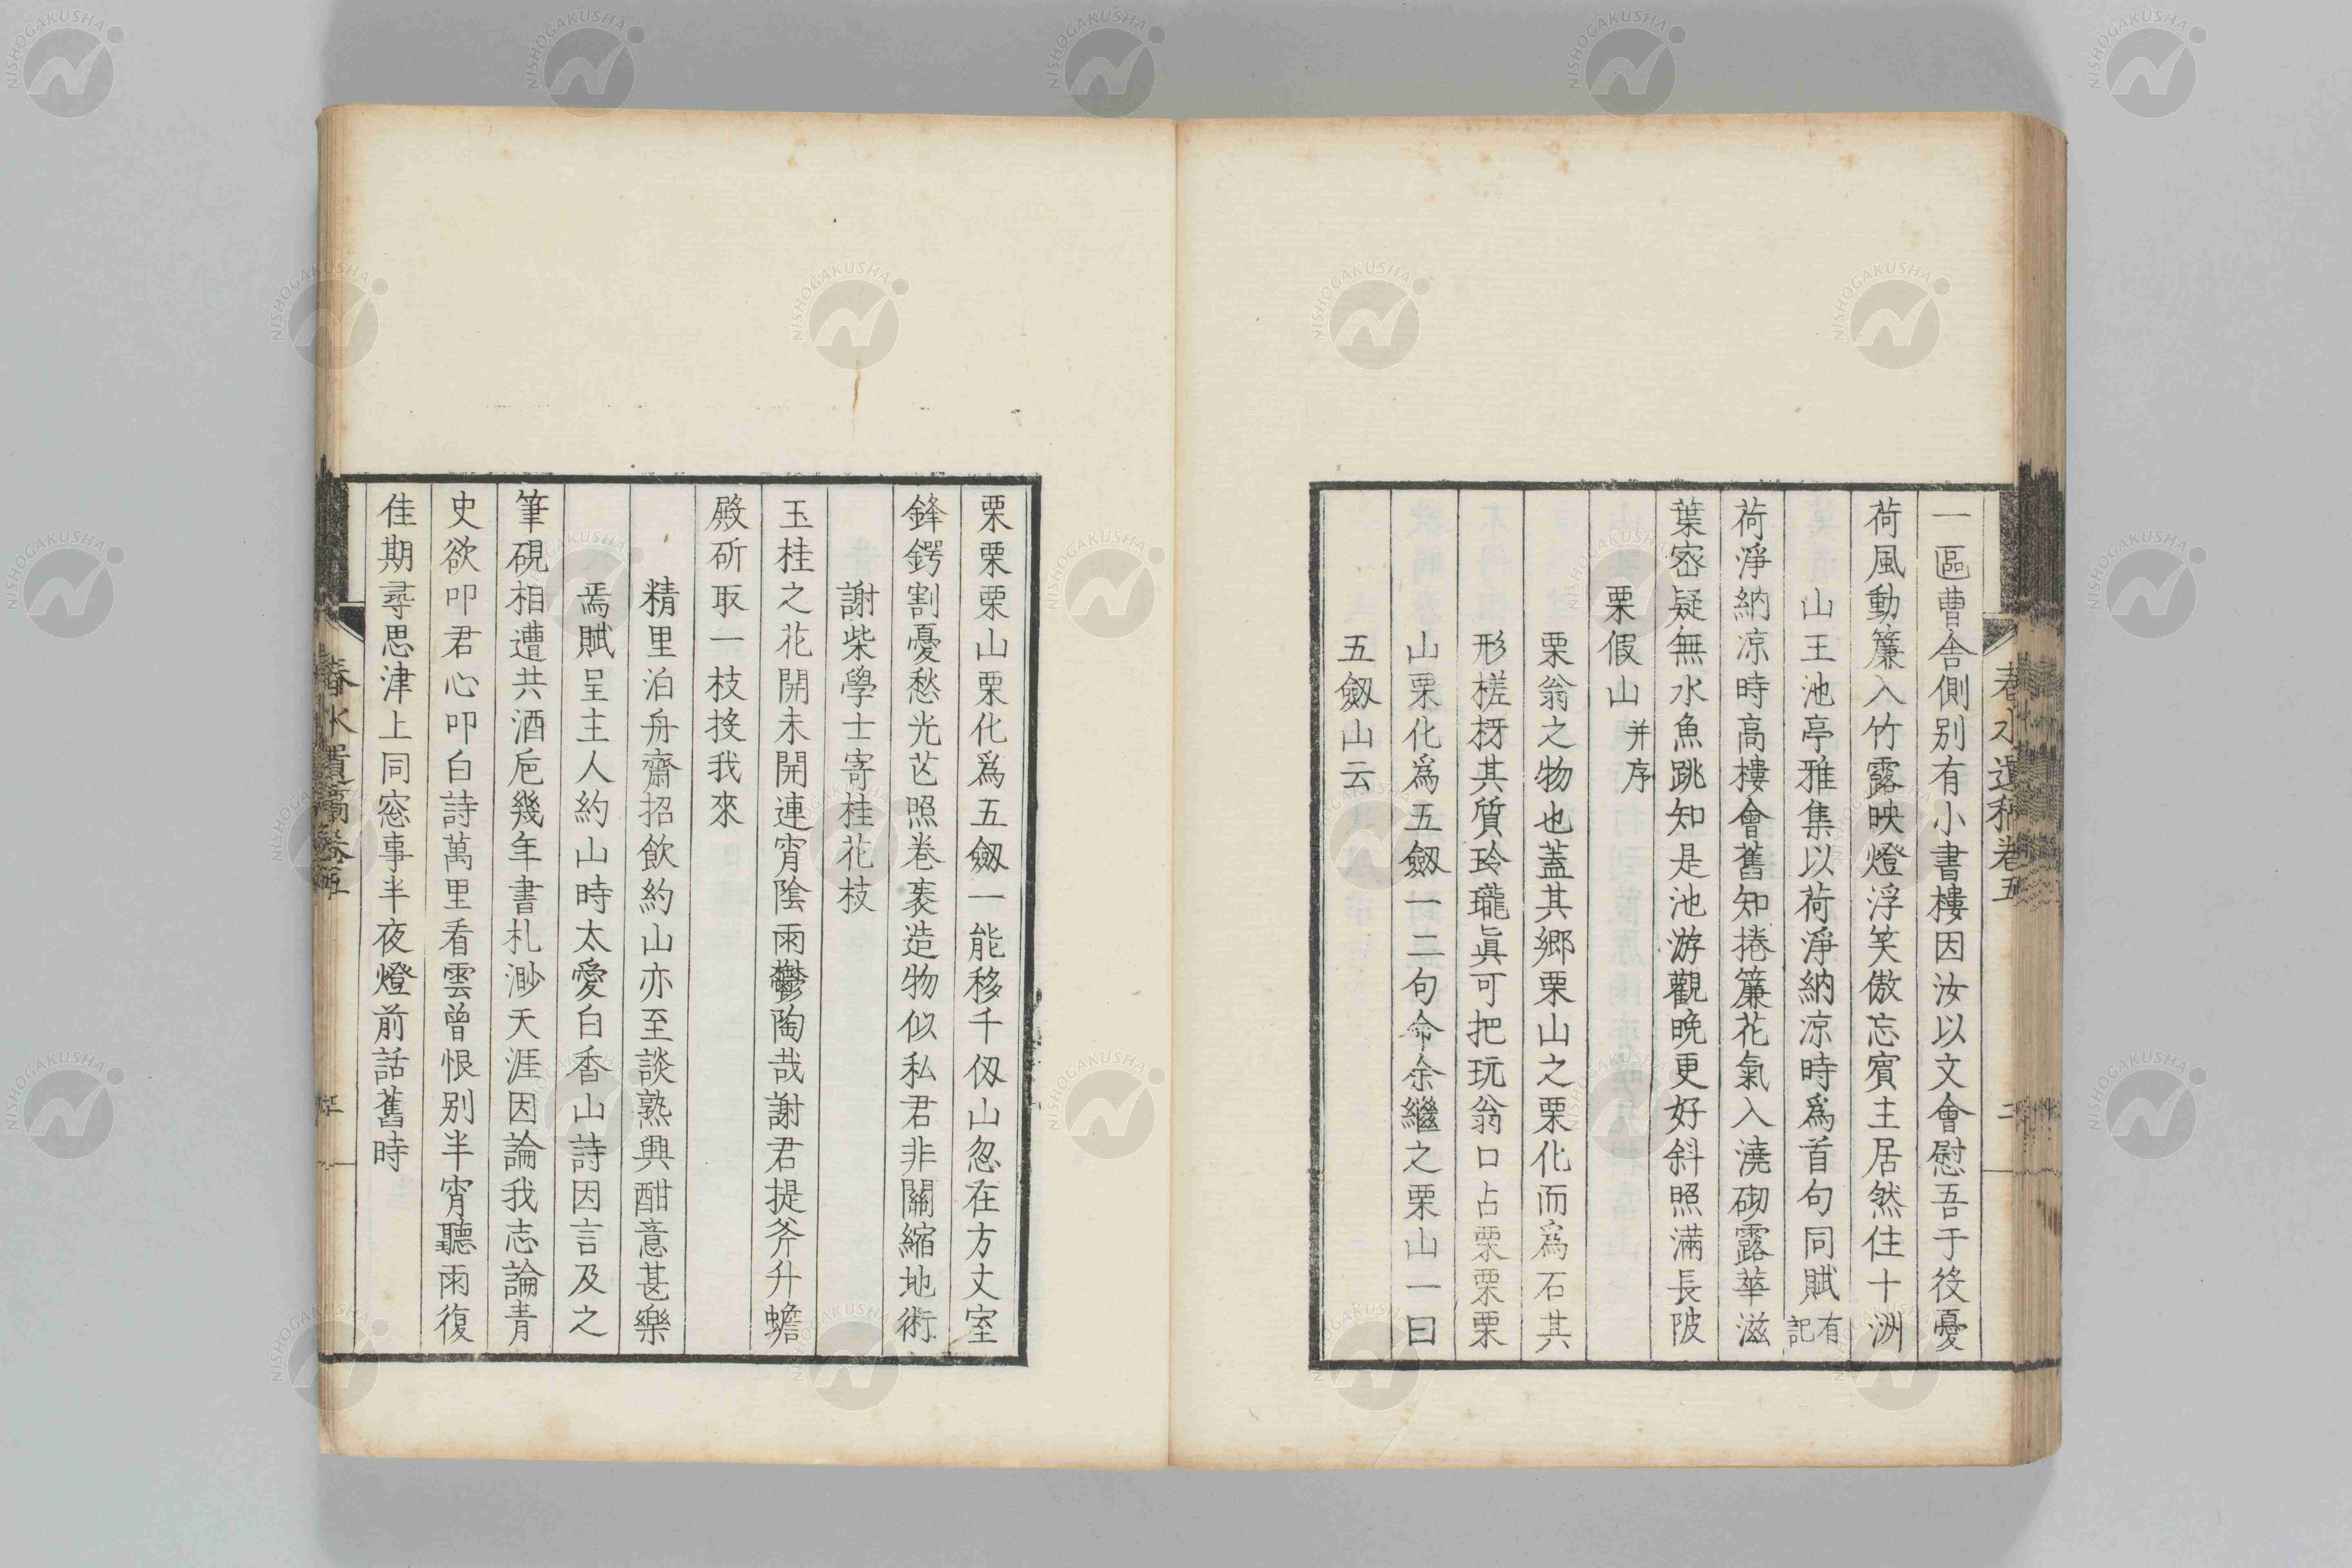 春水遺稿卷五
二
一區曹舍側別有小書樓因汝以文會慰吾于役憂
荷風動簾入竹露映燈浮笑傲忘賓主居然住十洲
山王池亭雅集以荷淨納凉時爲首句同賦有記
荷淨納凉時高樓會舊知捲簾花氣入澆砌露華滋
葉密疑無水魚跳知是池游觀晚更好斜照滿長陂
栗假山并序
栗翁之物也蓋其鄉栗山之栗化而爲石其
形槎枒其質玲瓏眞可把玩翁口占栗栗栗
山栗化爲五劔一二句命余繼之栗山一曰
五劔山云
栗栗栗山栗化爲五劔一能移千仭山忽在方丈室
鋒鍔割憂愁光芒照卷袠造物似私君非關縮地術
謝柴學士寄桂花枝
玉桂之花開未開連宵陰雨鬱陶哉謝君提斧升蟾
殿斫取一枝投我來
精里泊舟齋招飲約山亦至談熟興酣意甚樂
焉賦呈主人約山時太愛白香山詩因言及之
筆硯相遭共酒巵幾年書札渺天涯因論我志論青
史欲叩君心叩白詩萬里看雲曾恨別半宵聽雨復
佳期尋思津上同窓事半夜燈前話舊時
春水遺稿卷五
NISHOGAKUSHA